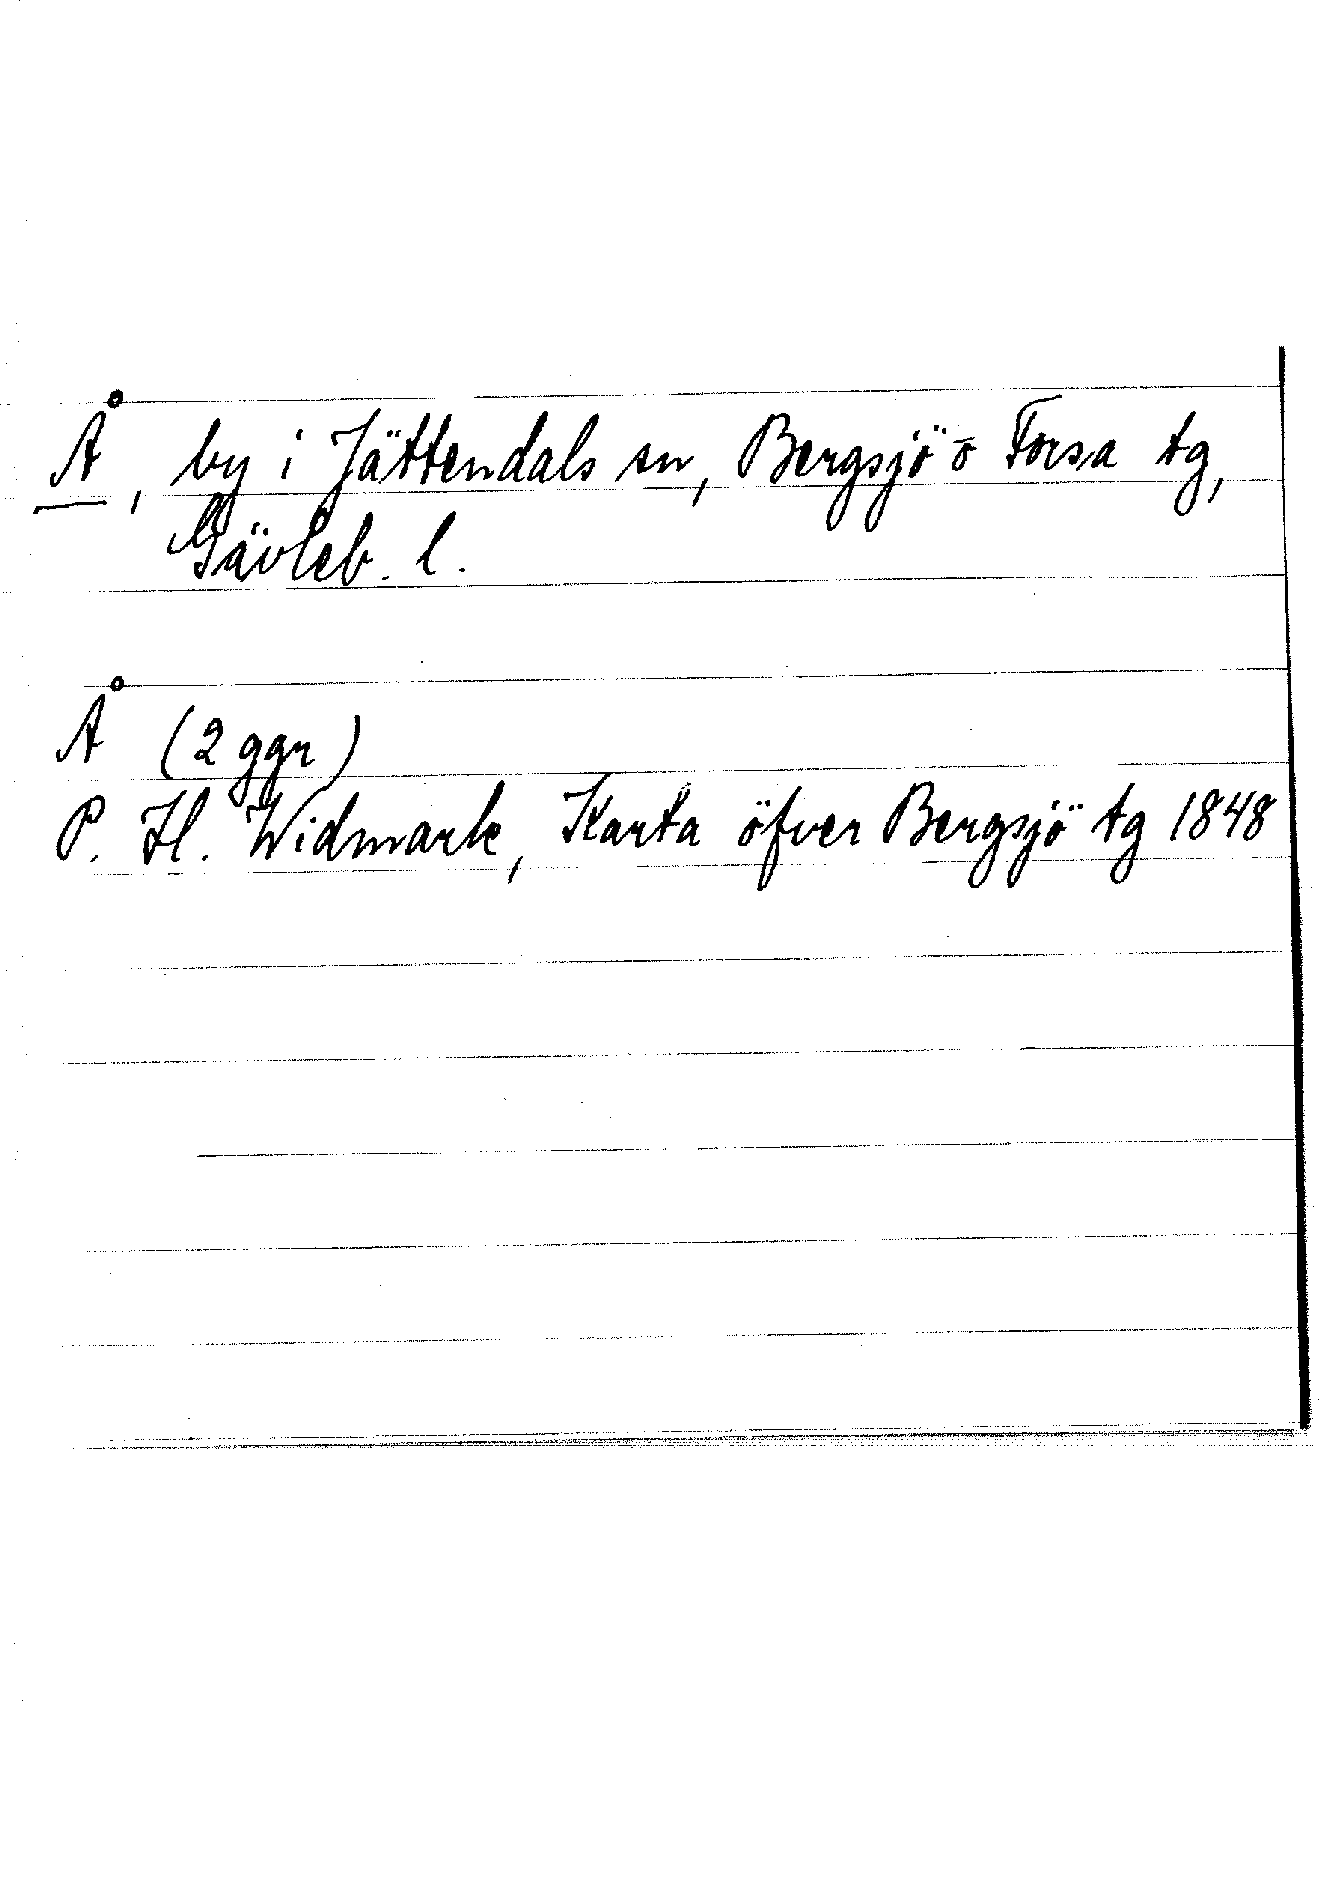 Å, by i Jättendals sn, Bergsjö o Forsa tg,
Gävleb. l.
Å (2 ggr)
P. H. Widmark, Karta öfver Bergsjö tg 1848